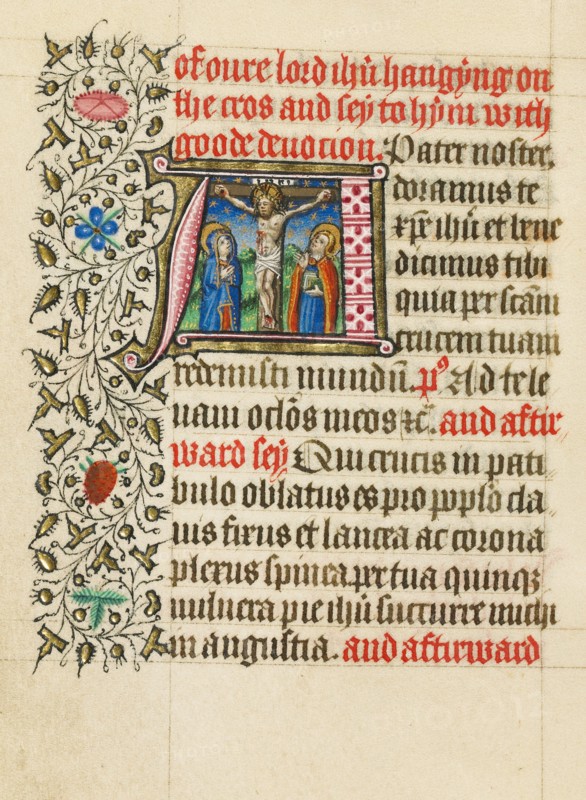 of oure lord ihū hangẏng on
the cros and seẏ to hẏm with
goode deuocion. Pater noster.
INRI
Adoramus te
xp̄e ihū et bene
dicimus tibi
quia per scām
crucem tuam
redemisti mundū. p⁹ Ad te le
uaui oc̄los meos ⁊c̄. and aftir
ward seẏ Qui crucis in pati
bulo oblatus es pro pop̄lo cla
uis fixus et lancea ac corona
plexus spinea per tua quinqꝫ
uulnera pie ihū succurre michi
in angustia. and aftirward